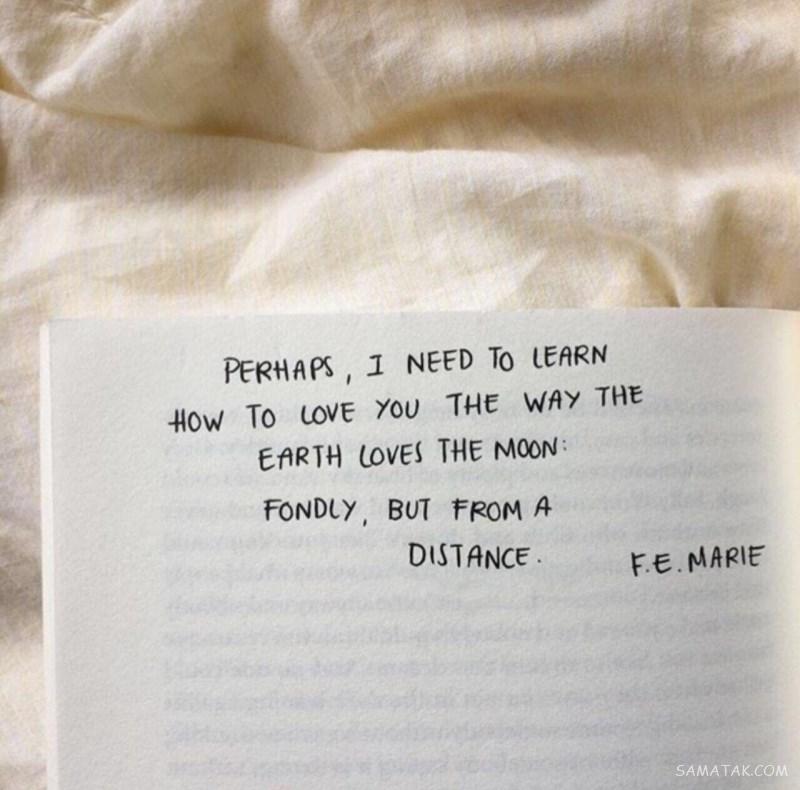 PERHAPS, I NEED TO LEARN
HOW TO LOVE YOU THE WAY THE
EARTH LOVES THE MOON:
FONDLY, BUT FROM A
DISTANCE.
F.E. MARIE
SAMATAK.COM